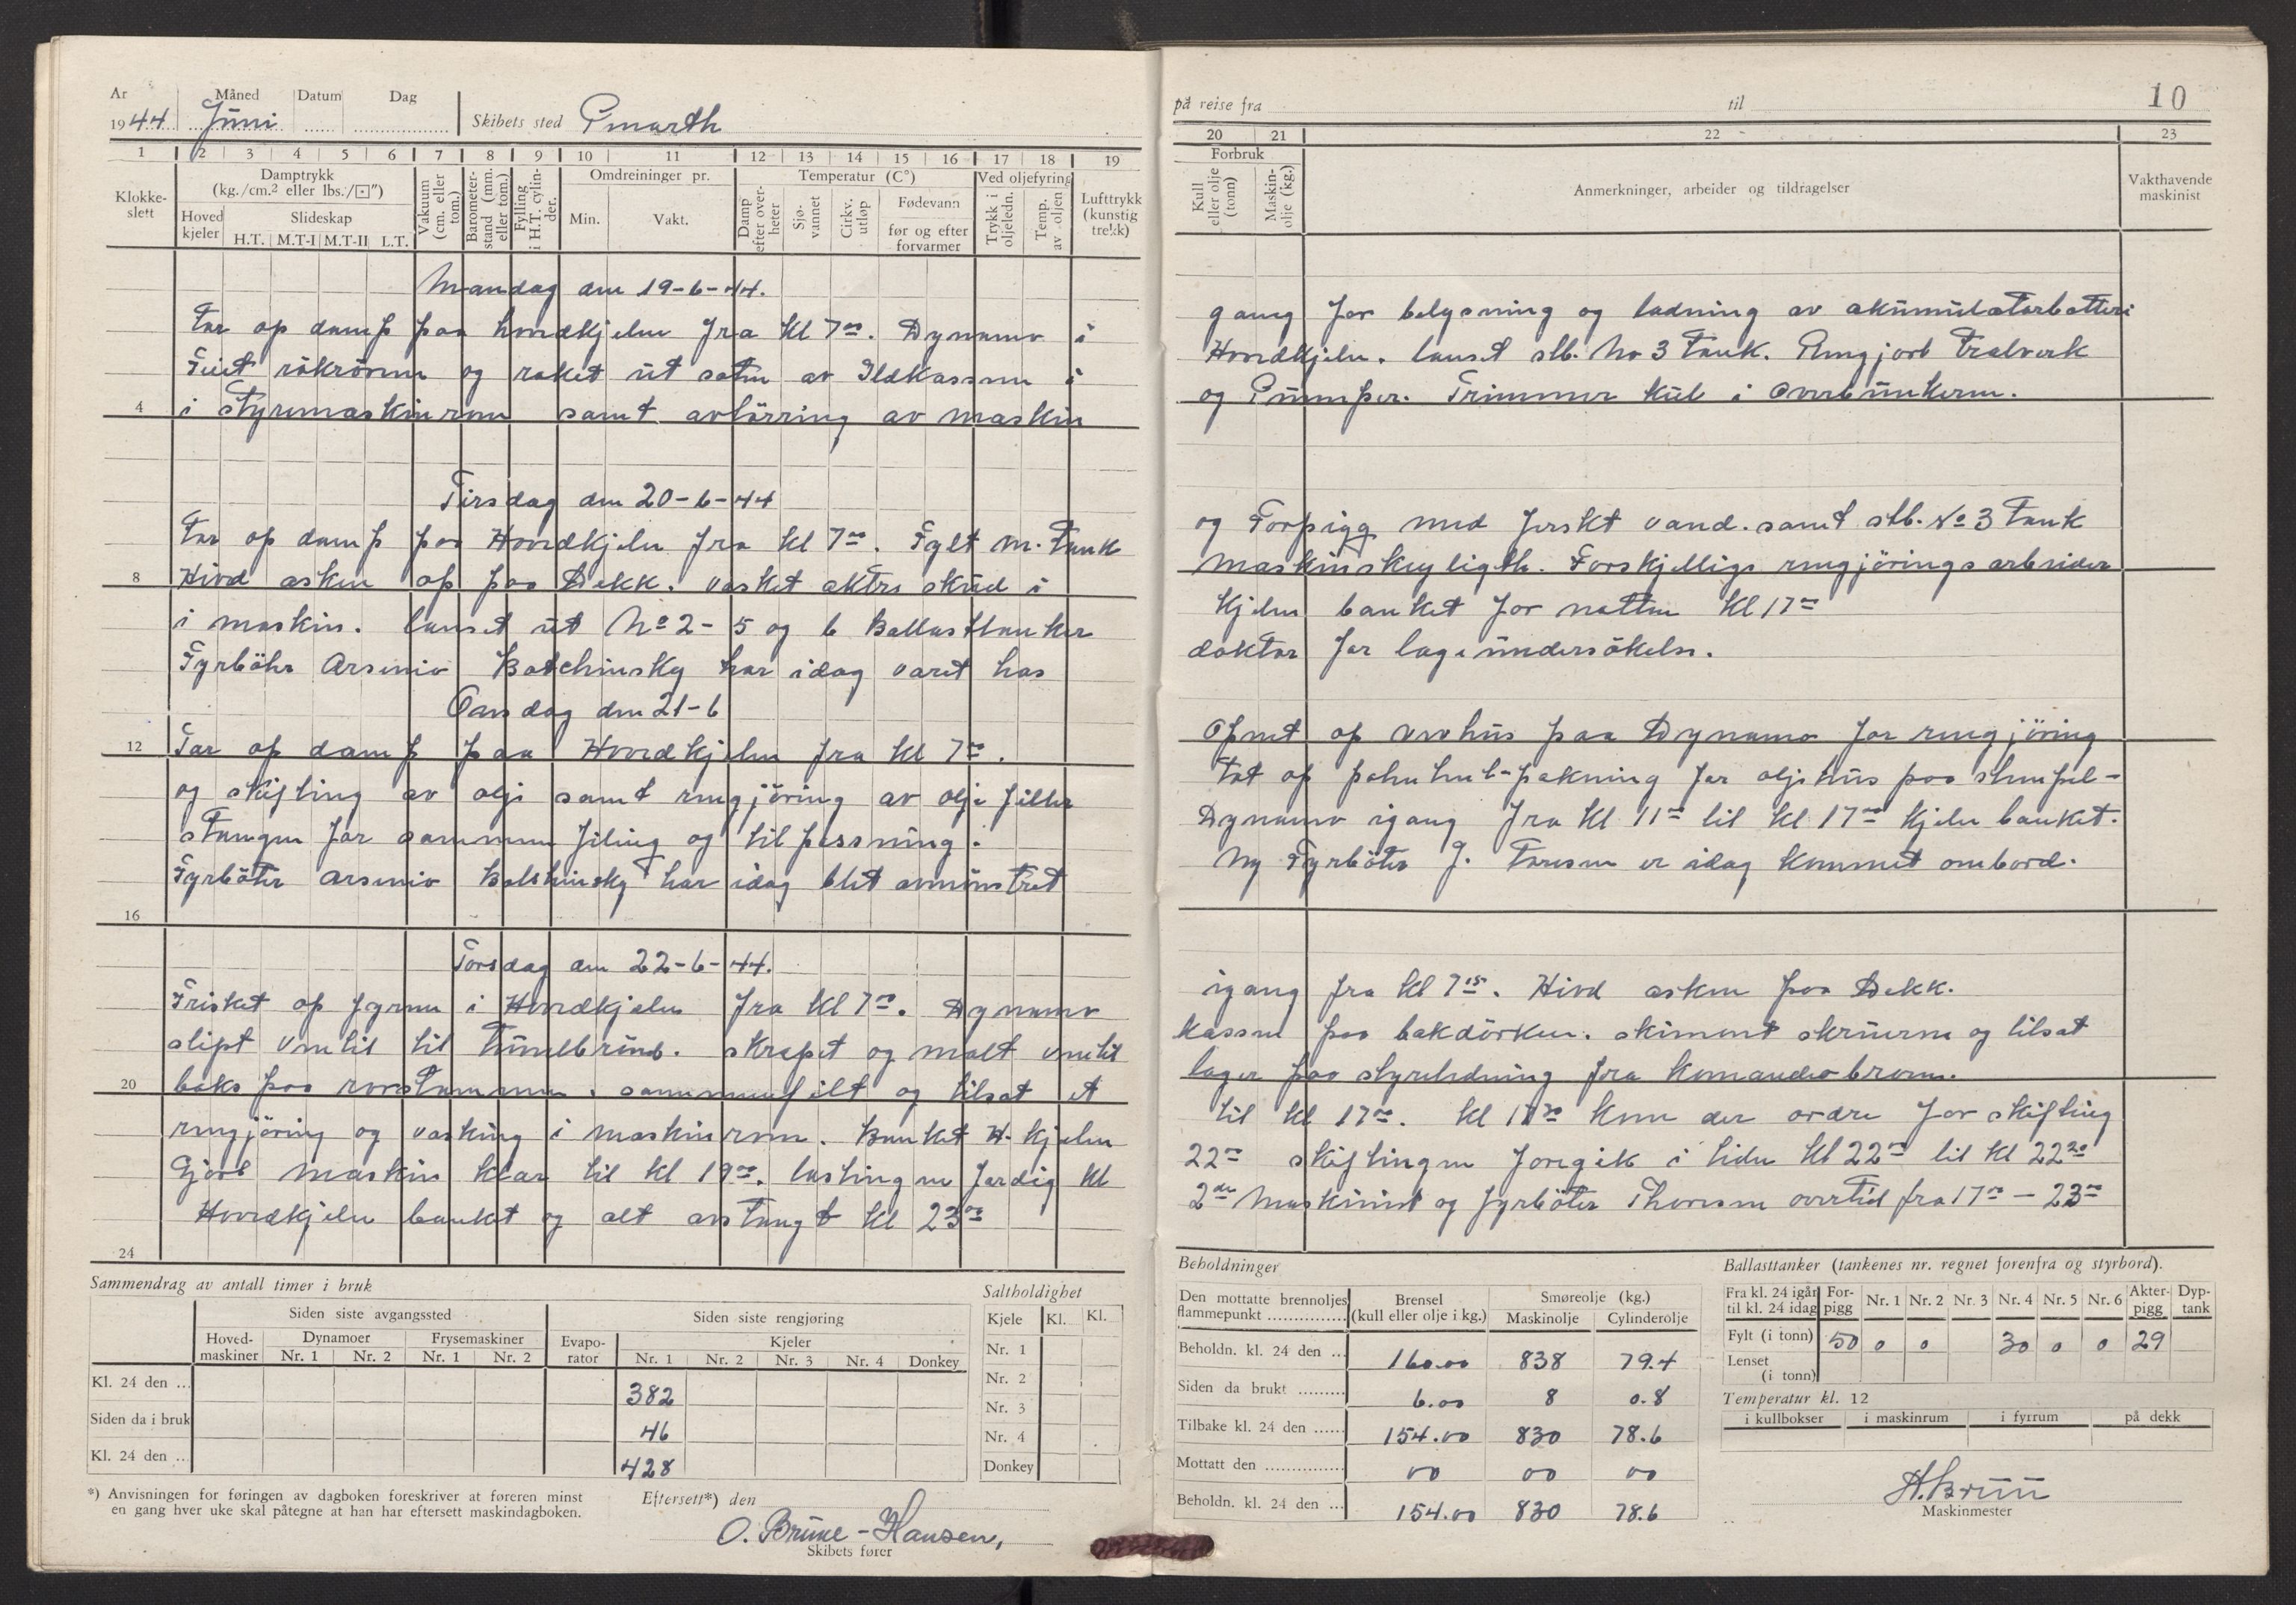 År Måned Datum Dag
1944 Juni Skibets sted Pmarth
1 2 3 4 5 6 7 8 9 10 11 12 13 14 15 16 17 18 19
Klokke-slett
Damptrykk (kg./cm.² eller lbs./□")
Hoved kjeler
Slideskap
H.T. M.T-I M.T-II L.T.
Vakuum (cm. eller tom.)
Barometer-stand (mm. eller tom.)
Fylling i H.T. cylin-der.
Omdreininger pr.
Min. Vakt.
Temperatur (C°)
Damp efter over-heter
Sjø-vannet
Cirkv. utløp
Fødevann
før og efter forvarmer
Ved oljefyring
Trykk i oljeledn.
Temp. av oljen
Lufttrykk (kunstig trekk)
Mandag den 19-6-44.
Tar op damp paa hovedkjelen fra kl 7⁰⁰. Dynamo i
Feiet rökrörene og raket ut soten av Ildkassene i
4 i styremaskinrom samt avtörring av maskin
Tirsdag den 20-6-44
Tar op damp paa Hovedkjelen fra kl 7⁰⁰. Fylt m. Tank
8 Hivd asken op paa Dekk. vasket aktre skud i
i maskin. lenset ut No 2-5 og 6 Ballasttanker
Fyrböter Arseniv Batchinsky har idag varet hos
Onsdag den 21-6
12 Tar op damp paa Hovedkjelen fra kl 7⁰⁰.
og skifting av olje samt rengjöring av olje filter
stangen for sammen filing og tilpassning.
Fyrböter Arseniv Batshinsky har idag blit avmönstret
16
Torsdag den 22-6-44.
Frisket op fyrene i Hovedkjelen fra kl 7⁰⁰. Dynamo
slipt ventil til Tunelbrönd. skrapet og malt ventil
20 boks paa rorstammen. sammenfilt og tilsat et
rengjöring og vasking i maskinrom. Banket H-kjelen
Gjort maskin klar til kl 19⁰⁰. lastingen færdig kl
Hovedkjelen banket og alt avstengt kl 23⁰⁰
24
Sammendrag av antall timer i bruk
Siden siste avgangssted Siden siste rengjøring
Hoved-maskiner Dynamoer Frysemaskiner Evapo-rator Kjeler
Nr. 1 Nr. 2 Nr. 1 Nr. 2 Nr. 1 Nr. 2 Nr. 3 Nr. 4 Donkey
Kl. 24 den ... 382
Siden da i bruk 46
Kl. 24 den ... 428
Saltholdighet
Kjele Kl. Kl.
Nr. 1
Nr. 2
Nr. 3
Nr. 4
Donkey
*) Anvisningen for føringen av dagboken foreskriver at føreren minst
en gang hver uke skal påtegne at han har eftersett maskindagboken.
Eftersett*) den
O. Brune-Hansen,
Skibets fører
på reise fra til 10
20 21 22 23
Forbruk
Kull eller olje (tonn)
Maskin-olje (kg.)
Anmerkninger, arbeider og tildragelser
Vakthavende maskinist
gang for belysning og ladning av akumulatorbatteri
Hovedkjelen. lenset stb. No 3 Tank. Rengjort Tralverk
og Pumper. Trimmer kul i Overbunkerne.
og Forpigg med ferskt vand. samt stb. No 3 Tank
maskinskeyligth. Forskjellige rengjörings arbeider
Kjelen banket for natten kl 17⁰⁰
doktor for lægeundersökelse.
Opnet op veivhus paa Dynamo for rengjöring
tat op pakning for oljehus paa stempel-
Dynamo igang fra kl 11⁰⁰ til kl 17⁰⁰ kjelen banket.
Ny Fyrböter J. Toresen er idag kommet ombord.
igang fra kl 7¹⁵. Hivd asken paa Dekk.
kassen paa bakdörken. skimmet skruerne og tilsat
lager paa styreledning fra komandobroen.
til kl 17⁰⁰. kl kom der ordre for skifting
22⁰⁰ skiftingen foregik i tiden kl 22⁰⁰ til kl 22³⁰
2den Maskinist og fyrböter Thoresen overtid fra 17⁰⁰ – 23⁰⁰
Beholdninger
Den mottatte brennoljes flammepunkt ............... Brensel (kull eller olje i kg.) Smøreolje (kg.)
Maskinolje Cylinderolje
Beholdn. kl. 24 den ... 160.00 838 79.4
Siden da brukt ......... 6.00 8 0.8
Tilbake kl. 24 den ...... 154.00 830 78.6
Mottatt den ............... 00 00 00
Beholdn. kl. 24 den ... 154.00 830 78.6
Ballasttanker (tankenes nr. regnet forenfra og styrbord).
Fra kl. 24 igår til kl. 24 idag For-pigg Nr. 1 Nr. 2 Nr. 3 Nr. 4 Nr. 5 Nr. 6 Akter-pigg Dyp-tank
Fylt (i tonn) 50 0 0 30 0 0 29
Lenset (i tonn)
Temperatur kl. 12
i kullbokser i maskinrum i fyrrum på dekk
A. Bruu
Maskinmester